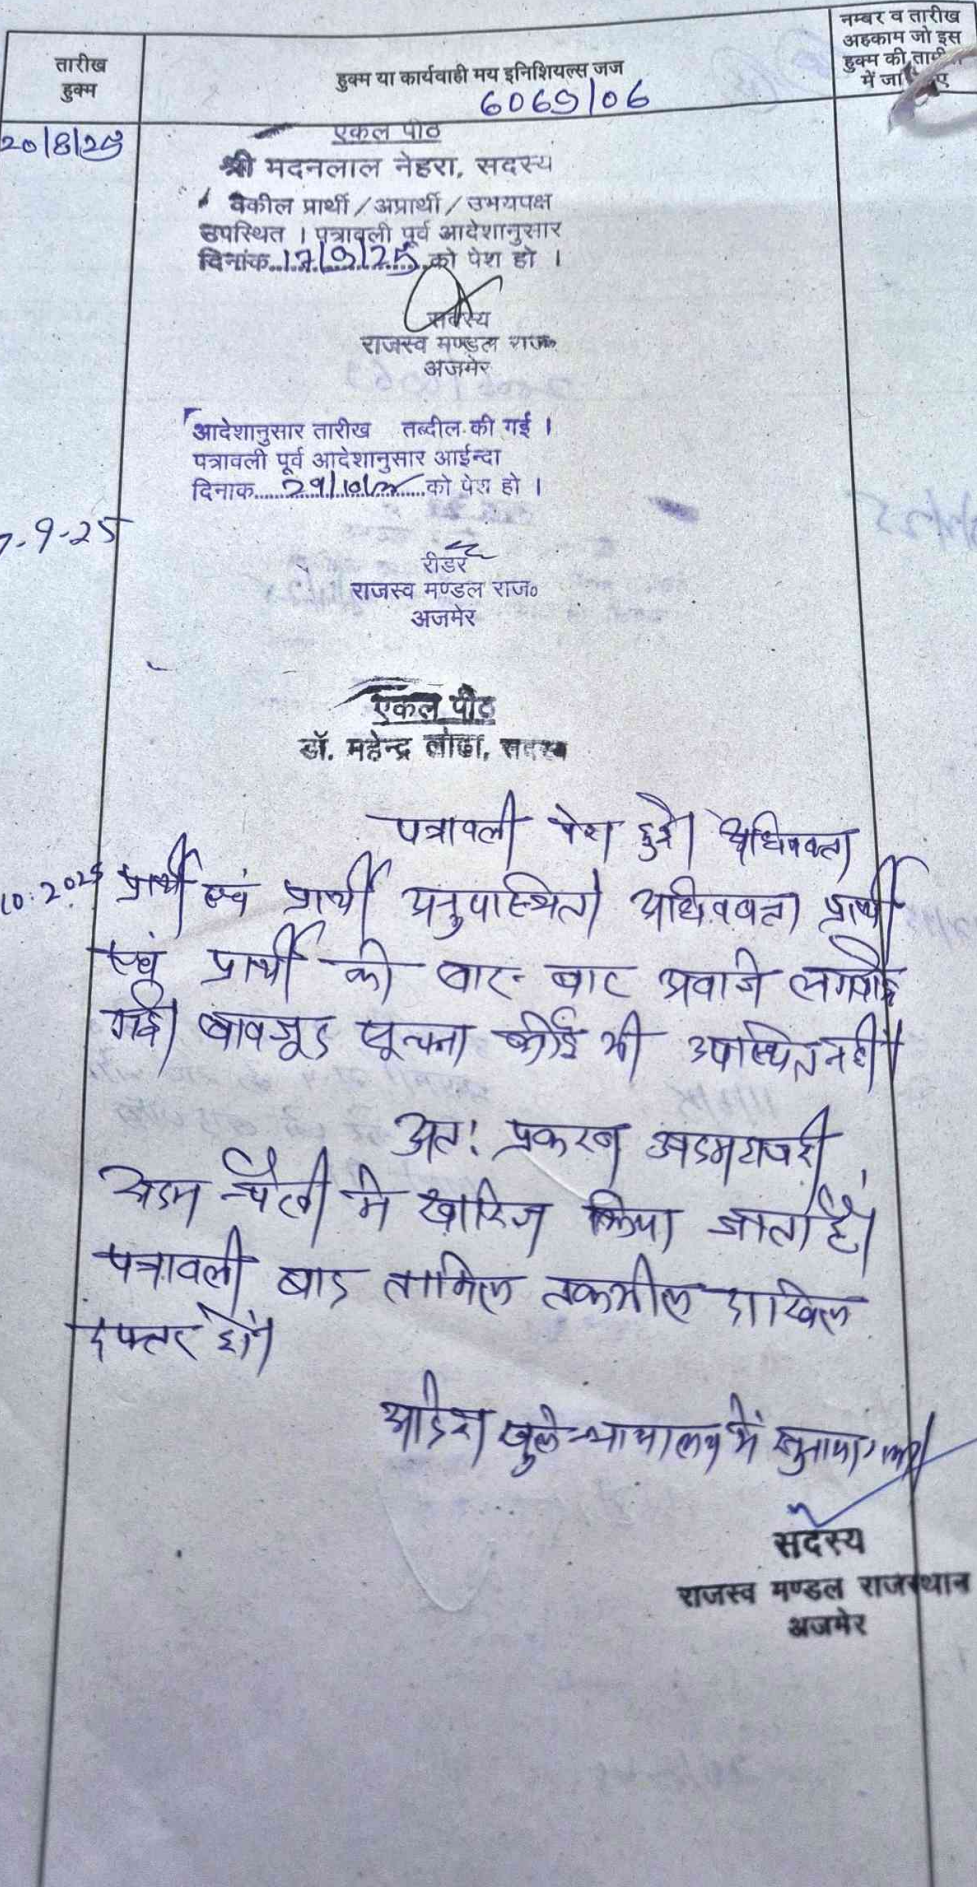 नम्बर व तारीख
अहकाम जो इस
हुक्म की तामी
में जा ए
तारीख
हुक्म
हुक्म या कार्यवाही मय इनिशियल्स जज
6069/06
20/8/25
एकल पीठ
श्री मदनलाल नेहरा, सदस्य
वकील प्रार्थी/अप्रार्थी/उभयपक्ष
उपस्थित । पत्रावली पूर्व आदेशानुसार
दिनांक...17/9/25...को पेश हो ।
सदस्य
राजस्व मण्डल राज०
अजमेर
आदेशानुसार तारीख तब्दील की गई ।
पत्रावली पूर्व आदेशानुसार आईन्दा
दिनाक......29/10/......को पेश हो ।
7-9-25
रीडर
राजस्व मण्डल राज०
अजमेर
एकल पीठ
डॉ. महेन्द्र लोढा, सदस्य
पत्रावली पेश हुई। अधिवक्ता
10.2025
प्रार्थी एवं प्रार्थी अनुपास्थित। अधिवक्ता प्रार्थी
एवं प्रार्थी को बार-बार अवाजे लगवाई
गई। बावजूद सूचना कोई भी उपस्थित नहीं।
अतः प्रकरण अदमहाजरी
अदम पैरवी में खारिज किया जाता है।
पत्रावली बाद तामिल तकमील दाखिल
दफ्तर हो।
आदेश खुले न्यायालय में सुनाया गया।
सदस्य
राजस्व मण्डल राजस्थान
अजमेर